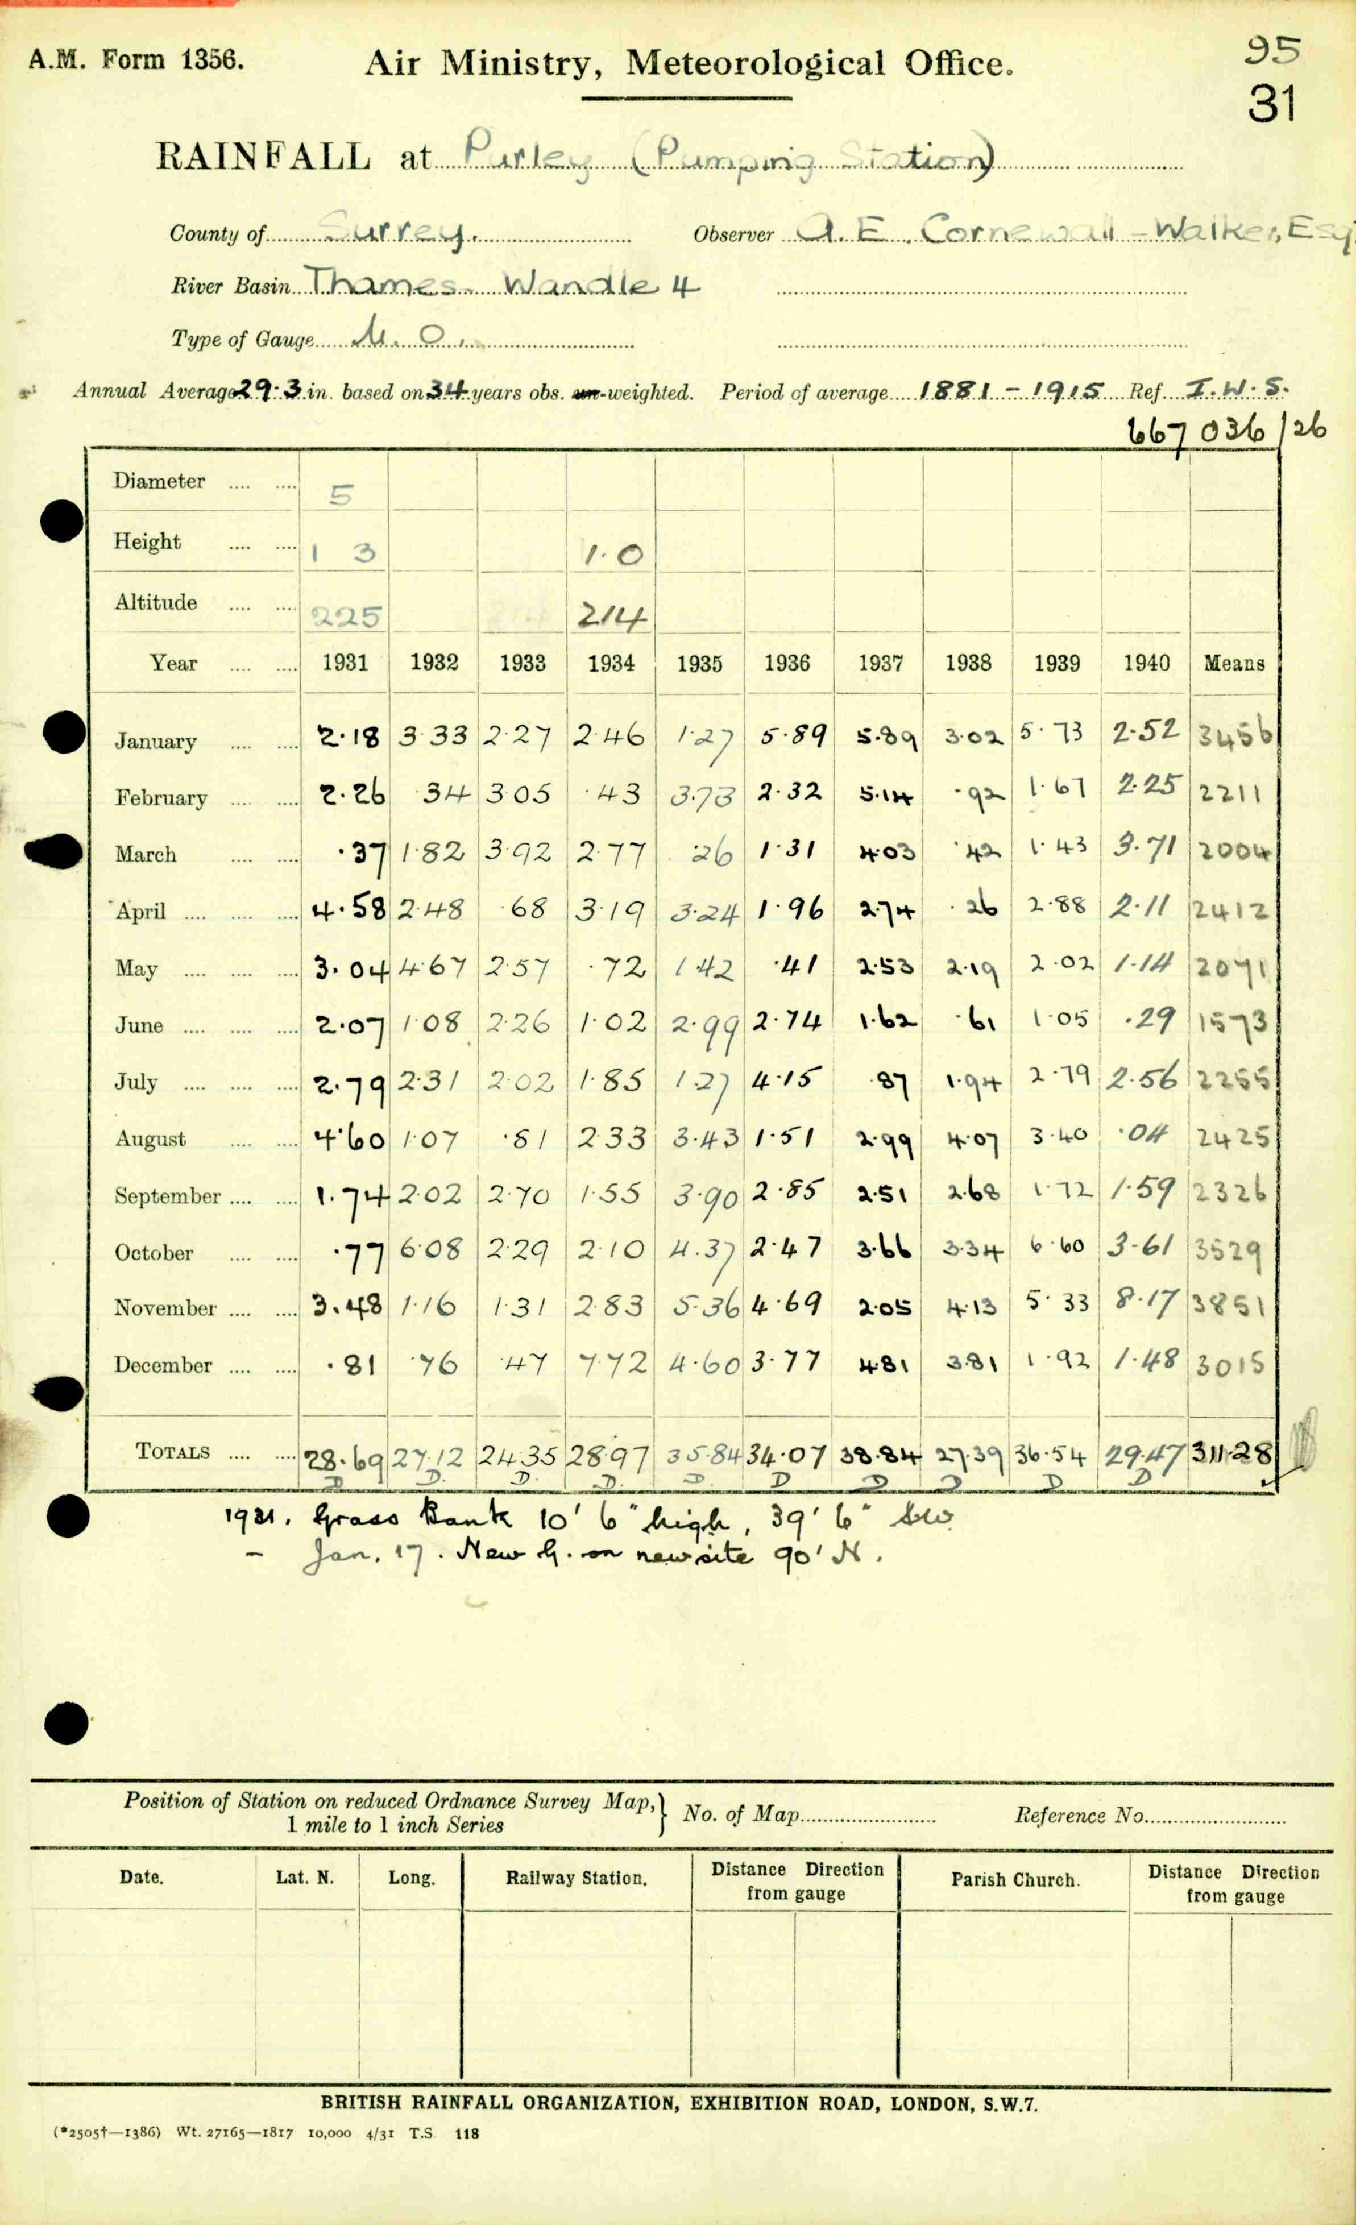 A.M. Form 1356.
Air Ministry, Meteorological Office.
95
31
RAINFALL at Purley (Pumping Station)
County of Surrey. Observer A. E. Cornewall-Walker, Esq.
River Basin Thames. Wandle 4
Type of Gauge M. O.
Annual Average 29.3 in. based on 34 years obs. un-weighted. Period of average 1881 - 1915 Ref. I.W.S.
667 036/26
Diameter .... .... 5
Height .... .... 1 3 1.0
Altitude .... .... 225 214
Year .... .... 1931 1932 1933 1934 1935 1936 1937 1938 1939 1940 Means
January .... .... 2.18 3.33 2.27 2.46 1.27 5.89 5.89 3.02 5.73 2.52 3456
February .... .... 2.26 .34 3.05 .43 3.73 2.32 5.14 .92 1.67 2.25 2211
March .... .... .37 1.82 3.92 2.77 .26 1.31 4.03 .42 1.43 3.71 2004
April .... .... .... 4.58 2.48 .68 3.19 3.24 1.96 2.74 .26 2.88 2.11 2412
May .... .... .... 3.04 4.67 2.57 .72 1.42 .41 2.53 2.19 2.02 1.14 2071
June .... .... .... 2.07 1.08 2.26 1.02 2.99 2.74 1.62 .61 1.05 .29 1573
July .... .... .... 2.79 2.31 2.02 1.85 1.27 4.15 .87 1.94 2.79 2.56 2255
August .... .... 4.60 1.07 .81 2.33 3.43 1.51 2.99 4.07 3.40 .04 2425
September .... .... 1.74 2.02 2.70 1.55 3.90 2.85 2.51 2.68 1.72 1.59 2326
October .... .... .77 6.08 2.29 2.10 4.37 2.47 3.66 3.34 6.60 3.61 3529
November .... .... 3.48 1.16 1.31 2.83 5.36 4.69 2.05 4.13 5.33 8.17 3851
December .... .... .81 .76 .47 7.72 4.60 3.77 4.81 3.81 1.92 1.48 3015
TOTALS .... .... 28.69 27.12 24.35 28.97 35.84 34.07 38.84 27.39 36.54 29.47 311.28
D D. D. D. D. D D D D D
1931. Grass Bank 10' 6" high, 39' 6" SW
- Jan. 17. New G. on new site 90' N.
Position of Station on reduced Ordnance Survey Map, } No. of Map Reference No.
1 mile to 1 inch Series
Date. Lat. N. Long. Railway Station. Distance Direction from gauge Parish Church. Distance Direction from gauge
BRITISH RAINFALL ORGANIZATION, EXHIBITION ROAD, LONDON, S.W.7.
(*2505†—1386) Wt. 27165—1817 10,000 4/31 T.S. 118